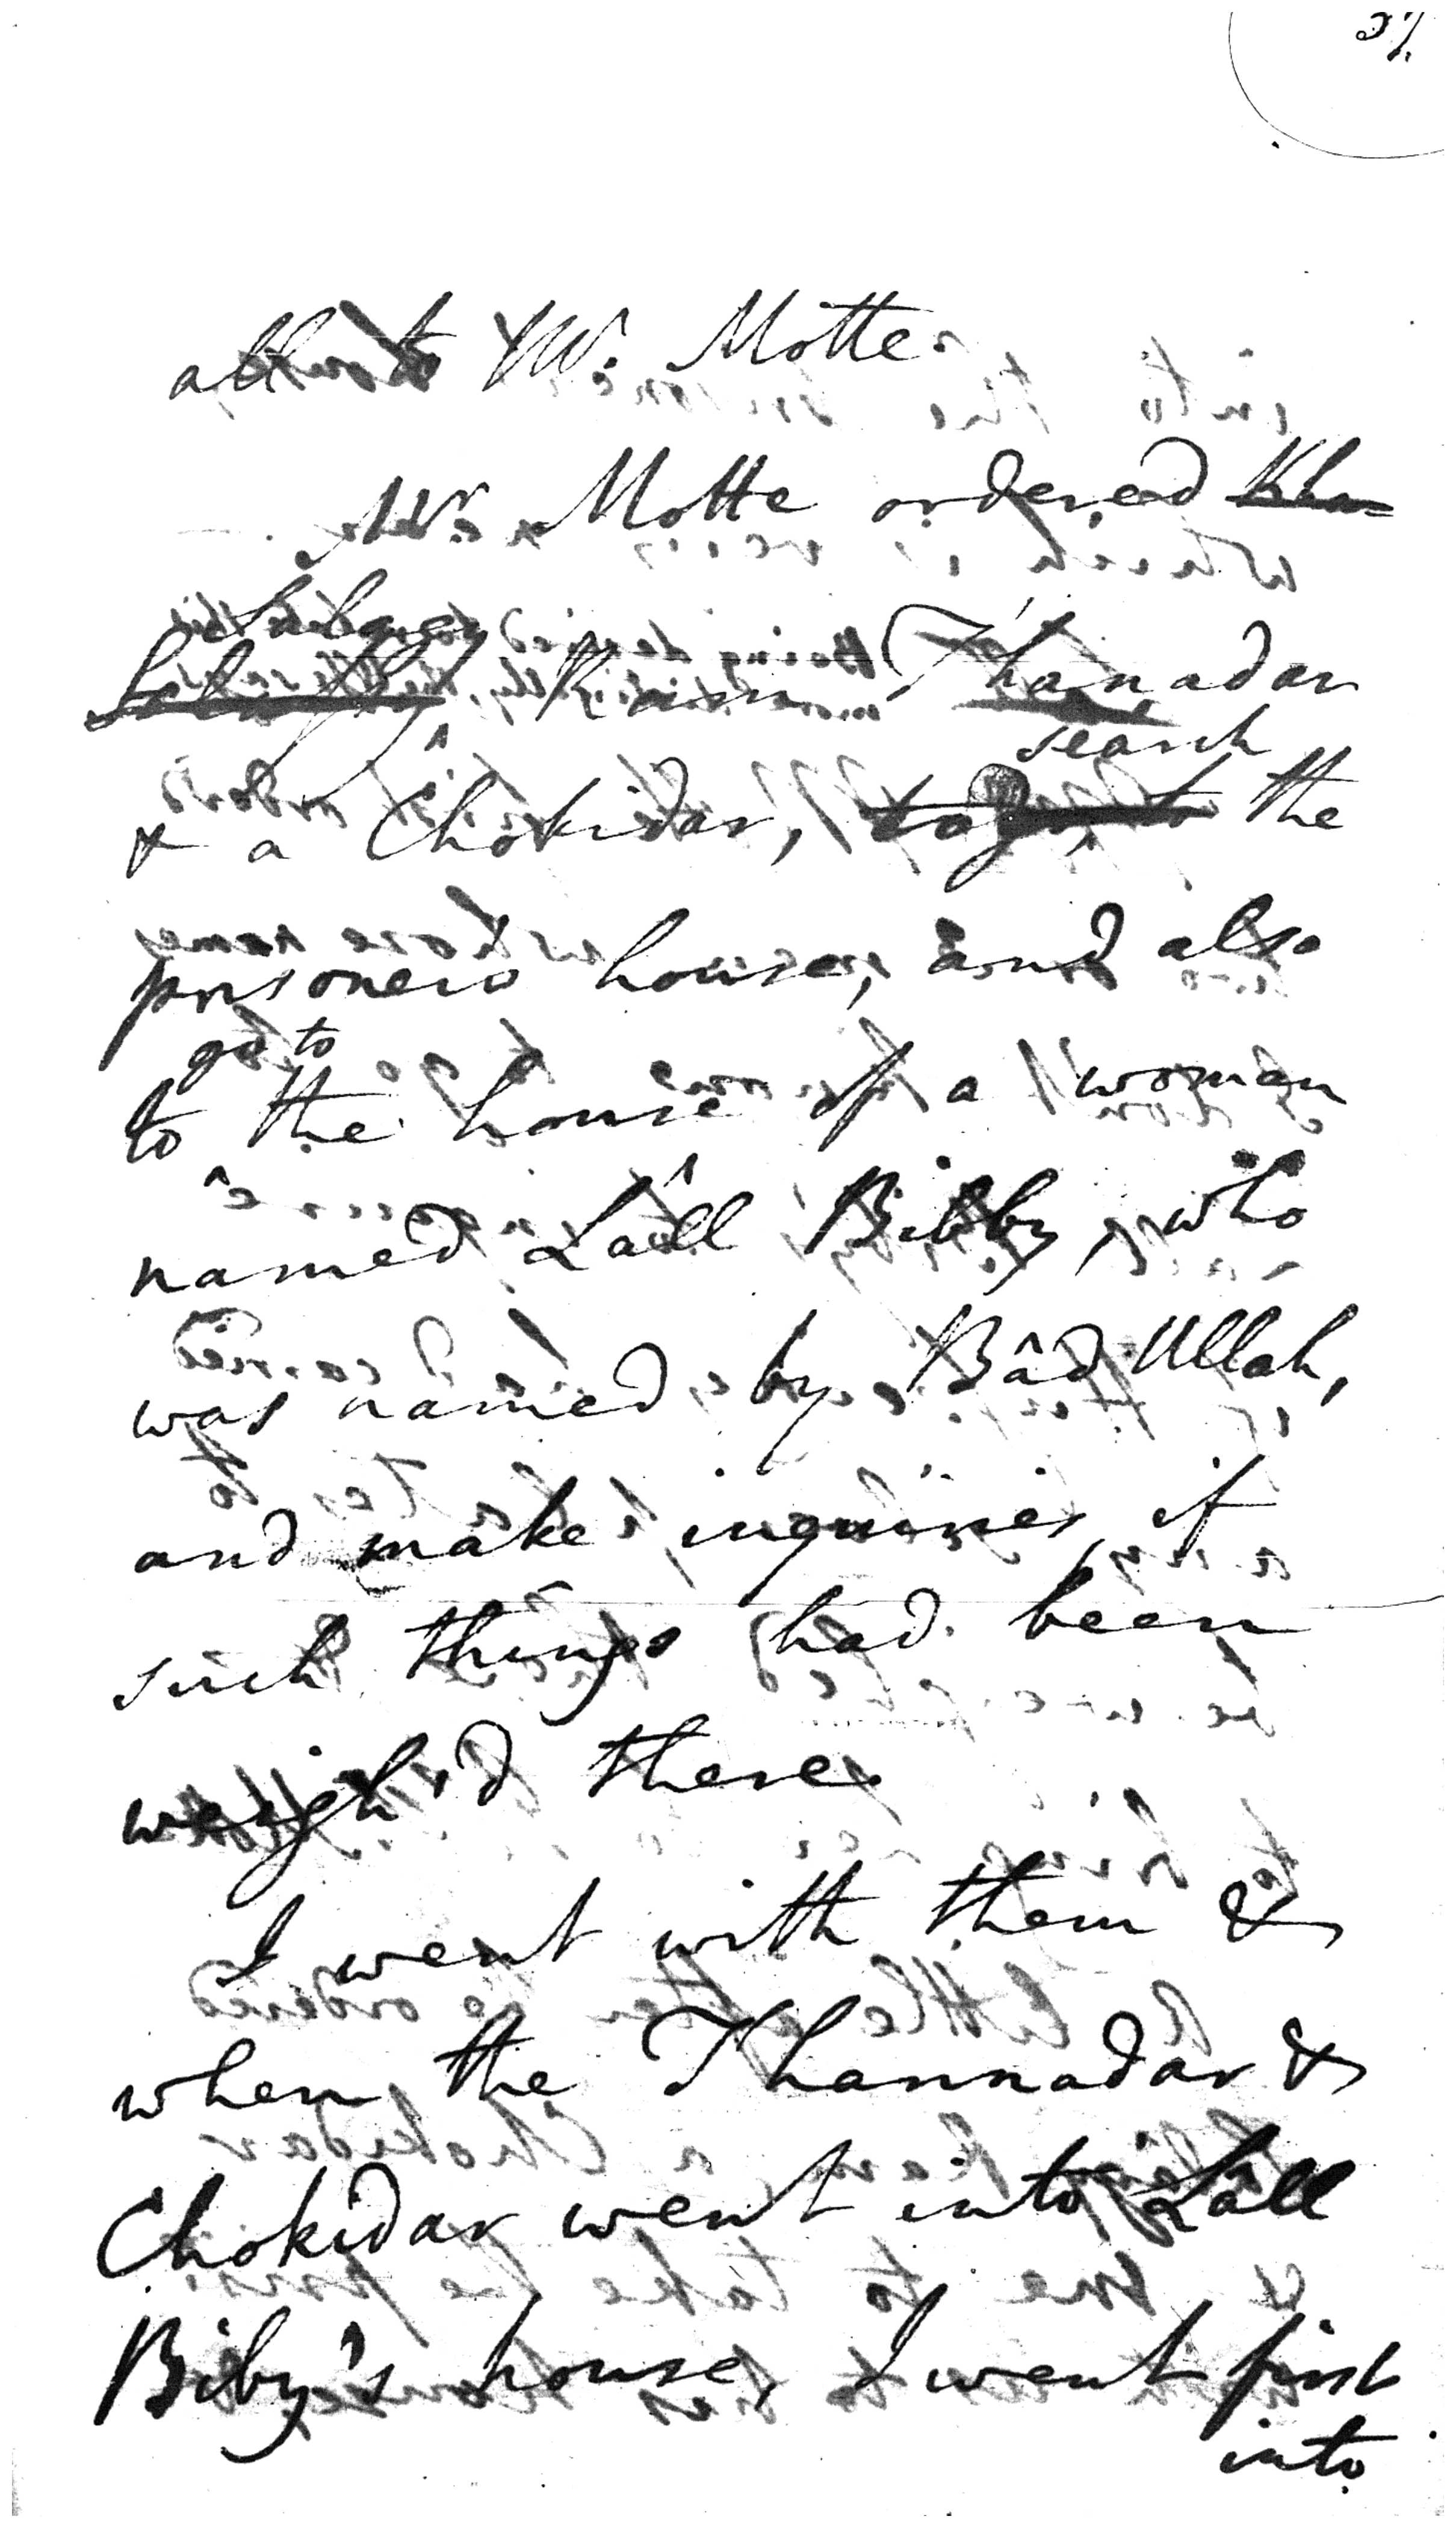 37.
all to Mr. Motte.
Mr. Motte ordered
Ram Thanadar
search
& a Chokidar, the
prisoners house, and also
go to
to the house of a woman
named Lâll Bibby, who
was named by Bâd Ullah,
and make inquiries, if
such things had been
weigh'd there.
I went with them &
when the Thannadar &
Chokidar went into Lâll
Biby's house, I went first
into